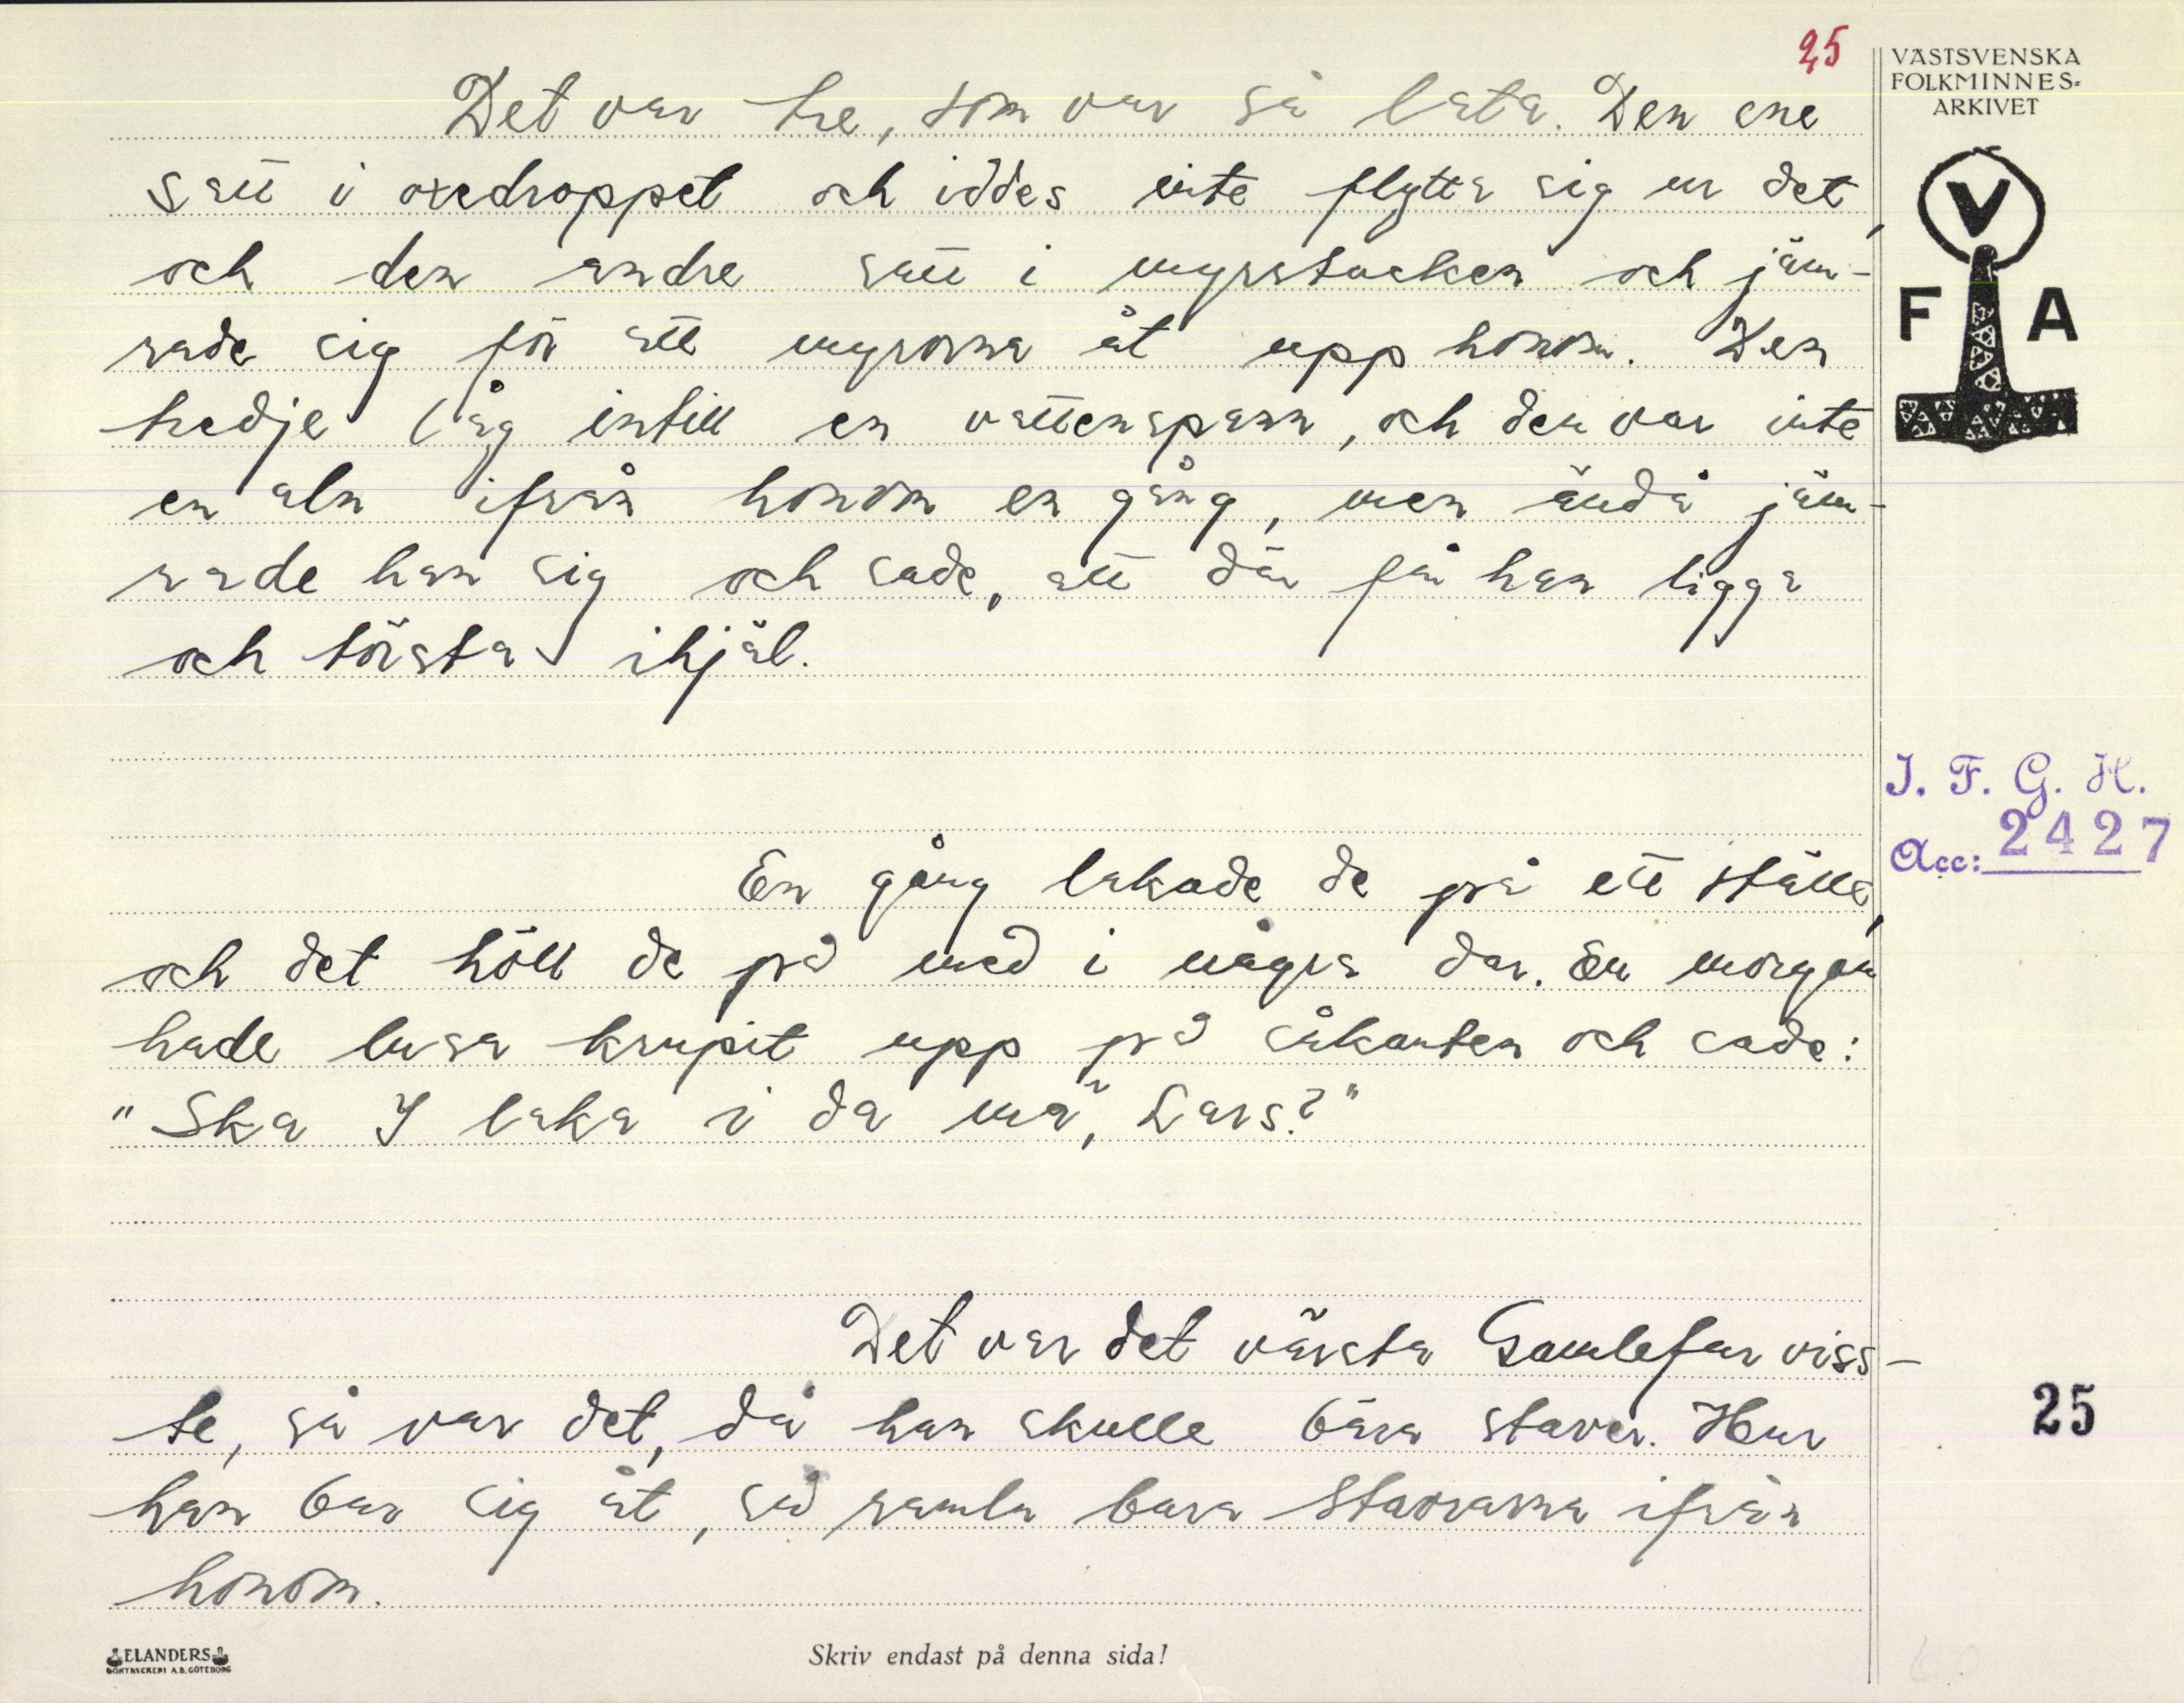 25
VÄSTSVENSKA
FOLKMINNES-
ARKIVET
V
F A
Det var tre, som var så lata. Den ene
satt i oxedroppet och iddes inte flytta sig ur det,
och den andre satt i myrstacken och jäm-
rade sig för att myrorna åt upp honom. Den
tredje låg intill en vattenspann, och den var inte
en aln ifrån honom en gång, men ändå jäm-
rade han sig och sade, att där får han ligga
och törsta ihjäl.
I. F. G. H.
Acc: 2427
En gång lakade de på ett ställe,
och det höll de på med i några dar. En morgon
hade lusa krupit upp på såkanten och sade:
"Ska I laka i da mä, Lars?"
Det var det värsta Gamlefar viss-
te, så var det, då han skulle bära staver. Hur
han bar sig åt, så ramla bara stavrarna ifrån
honom.
25
ELANDERS
BOKTRYCKERI A.B. GÖTEBORG
Skriv endast på denna sida!